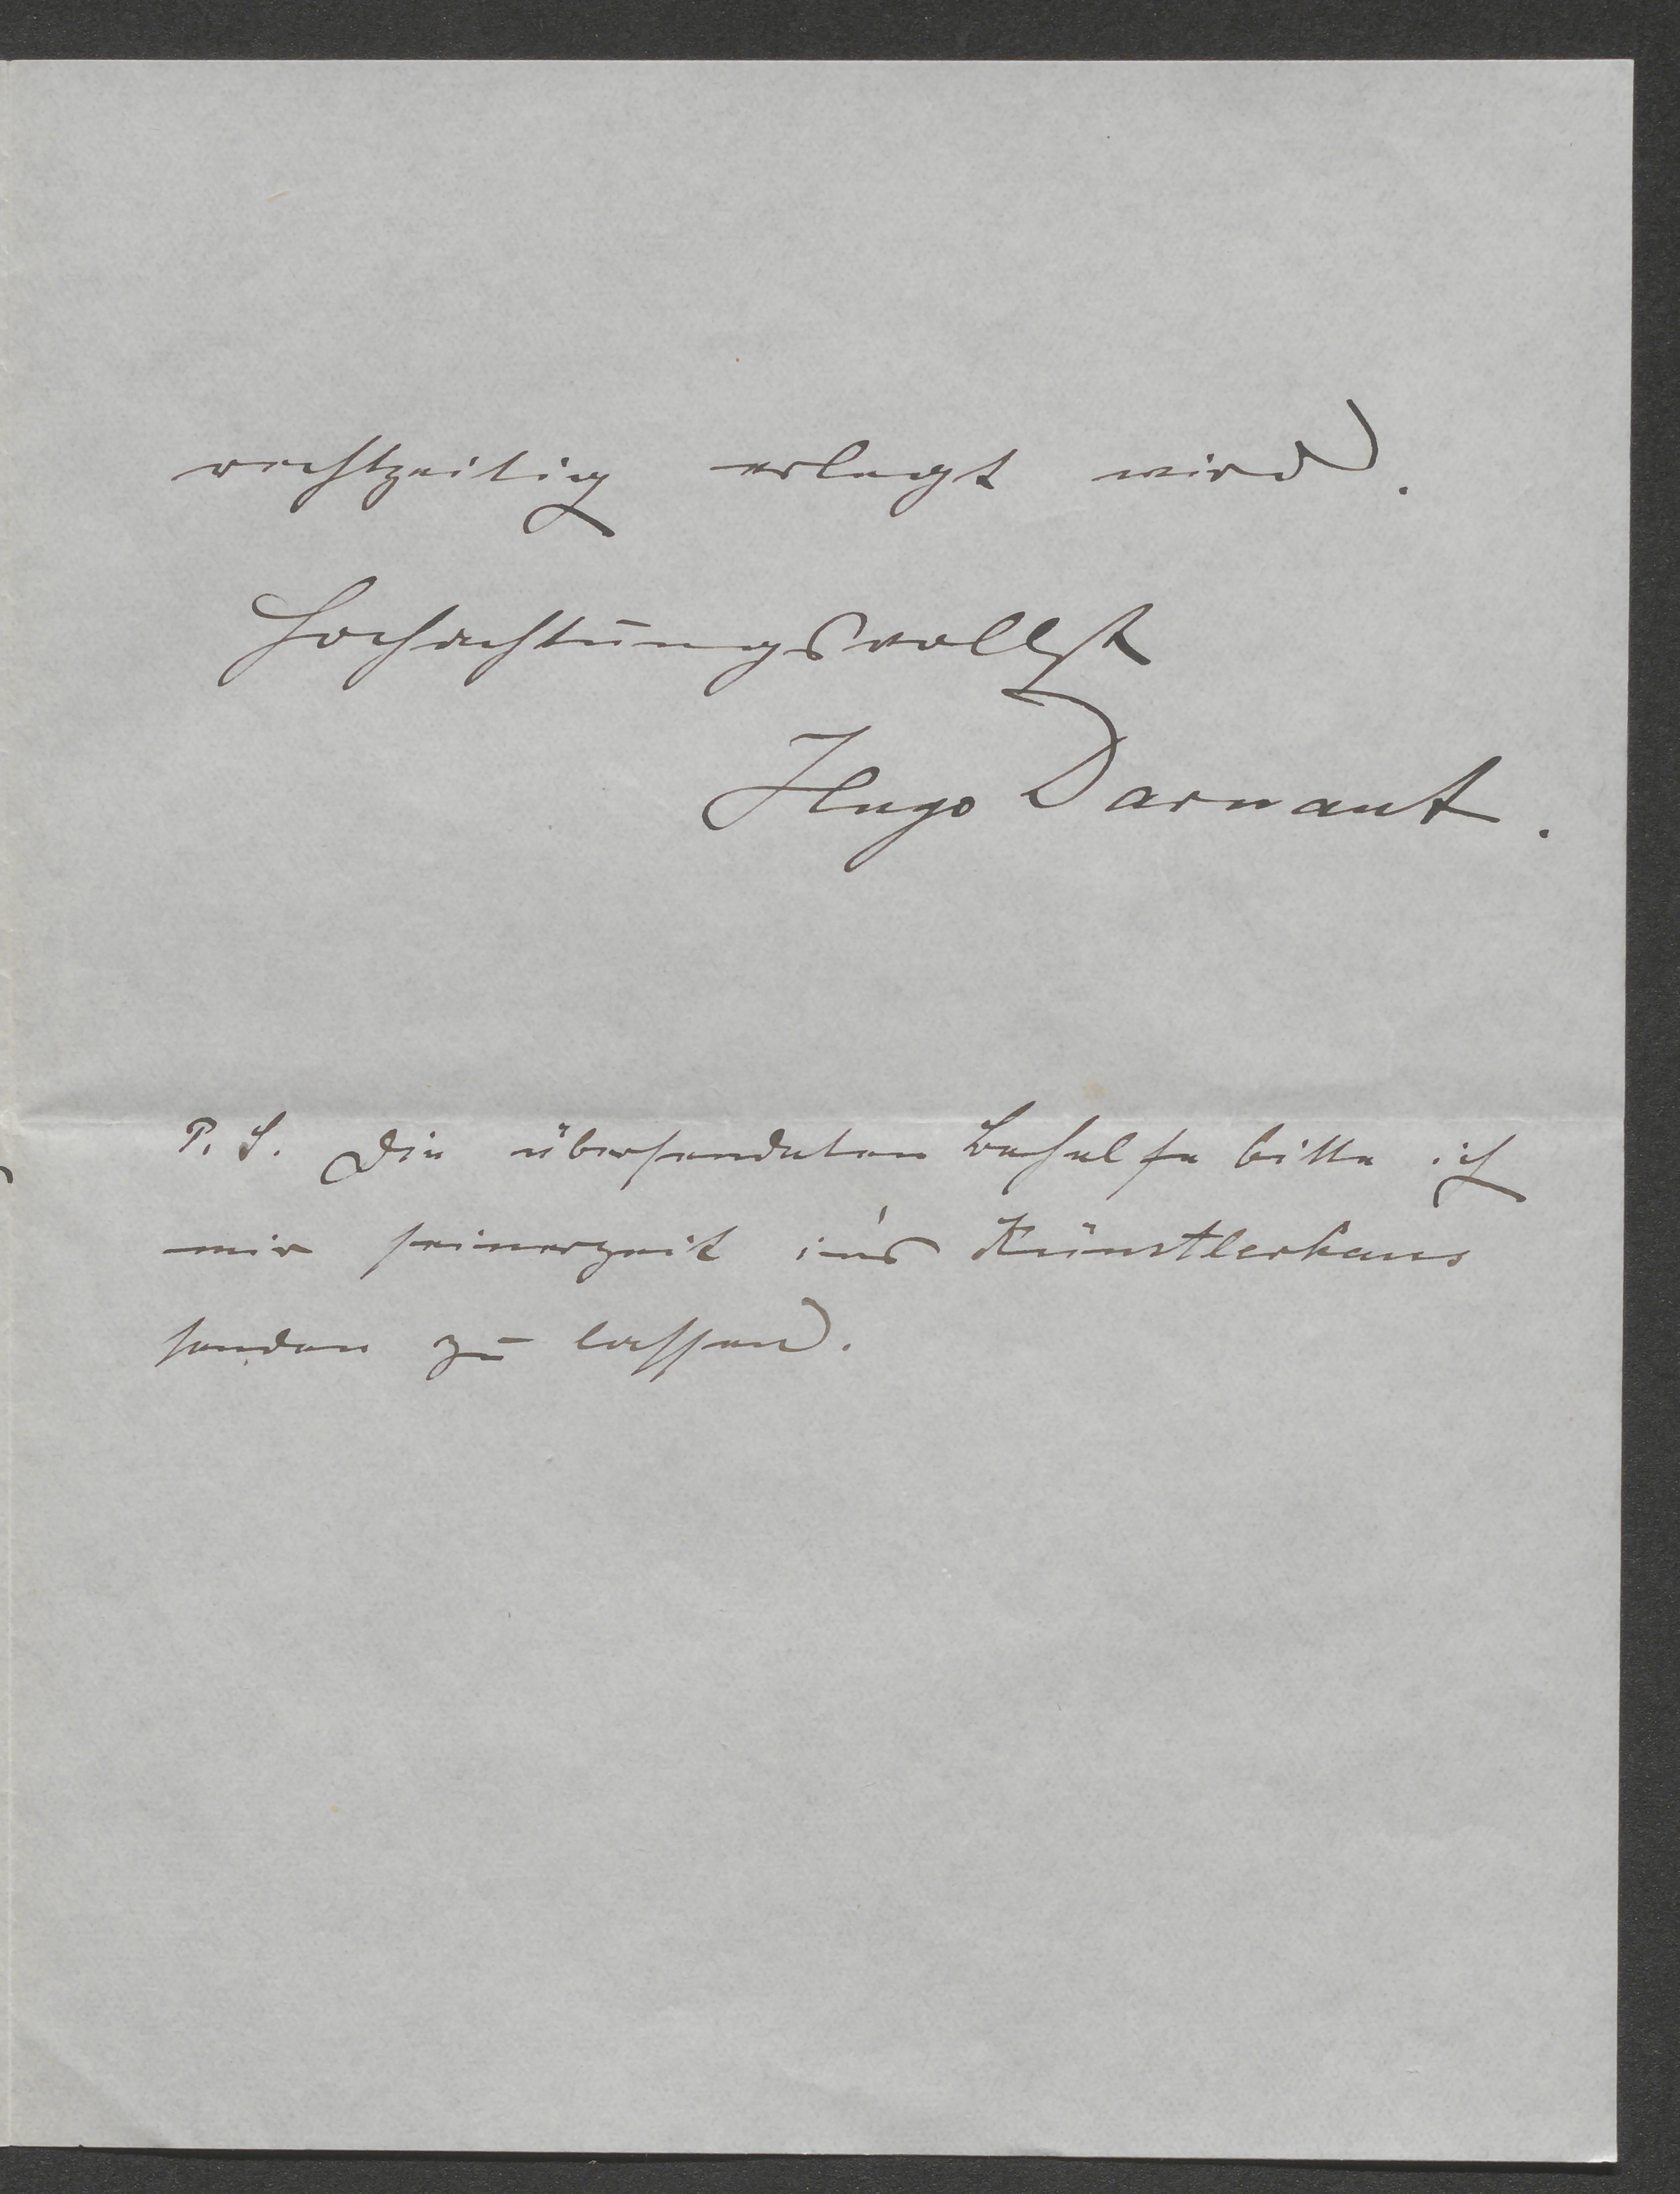 rechtzeitig erlegt wird.
Hochachtungsvollst
Hugo Darnaut.
P. S. Die übersendeten Behelfe bitte ich
mir seinerzeit in's Künstlerhaus
senden zu lassen.